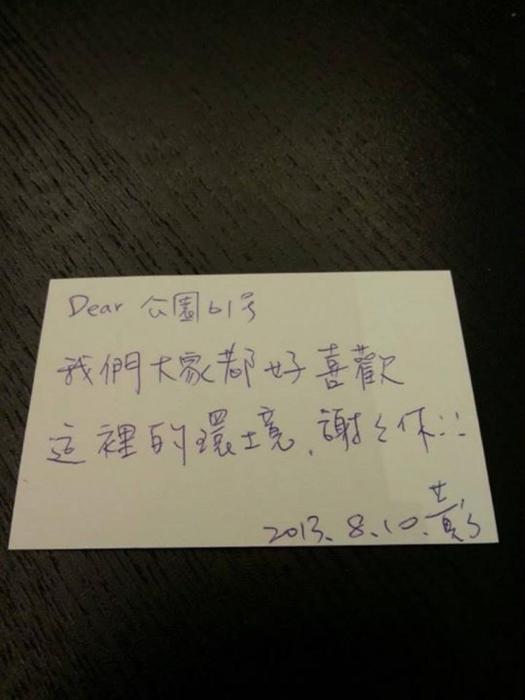 Dear 公園61号
我們大家都好喜歡
這裡的環境,謝々你!!
2013.8.10.